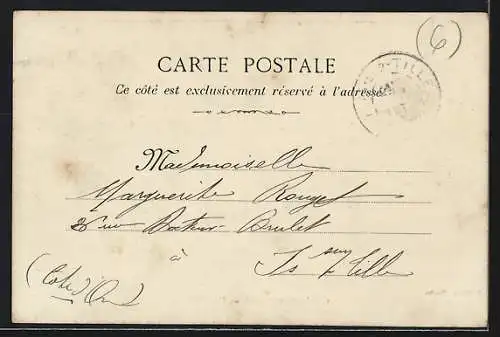 (6)
CARTE POSTALE
Ce côté est exclusivement réservé à l'adresse
Mademoiselle
Marguerite Rouget
à
Is sur Tille
(Côte d'Or)